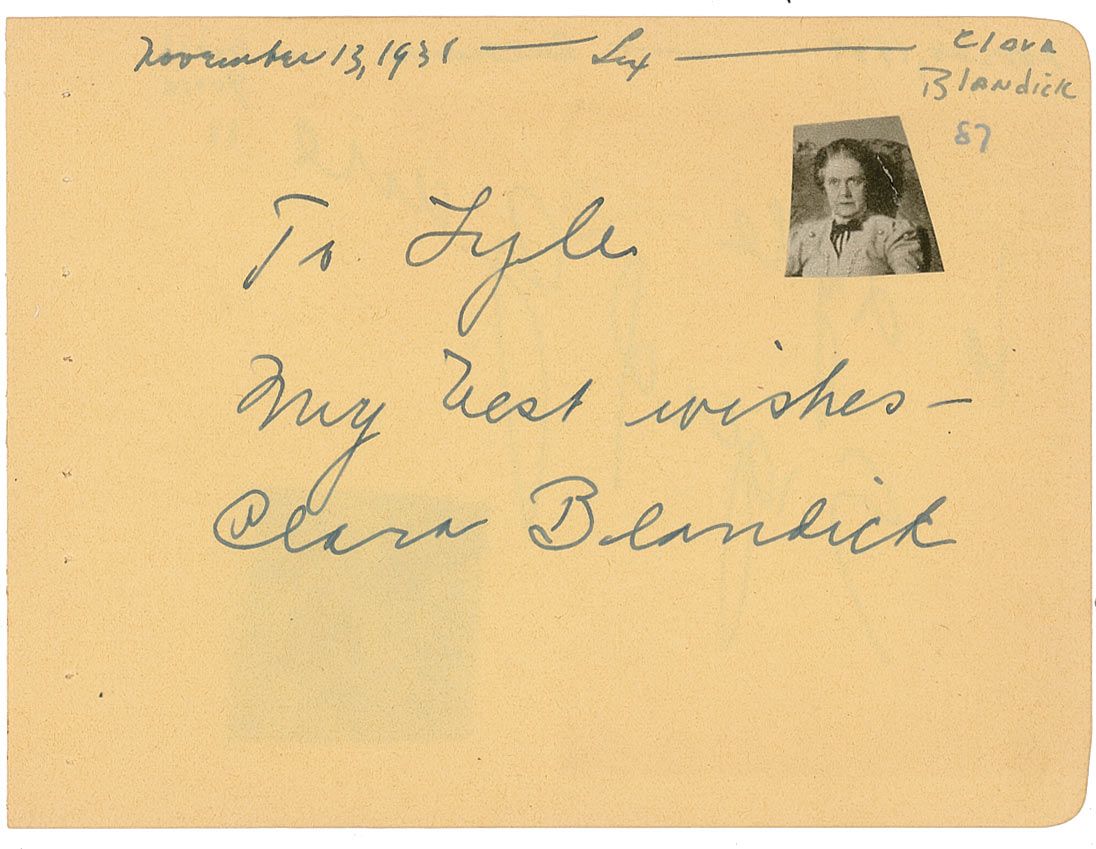 November 13, 1931 — Lux — Clara
Blandick
87
To Lyle
My best wishes —
Clara Blandick